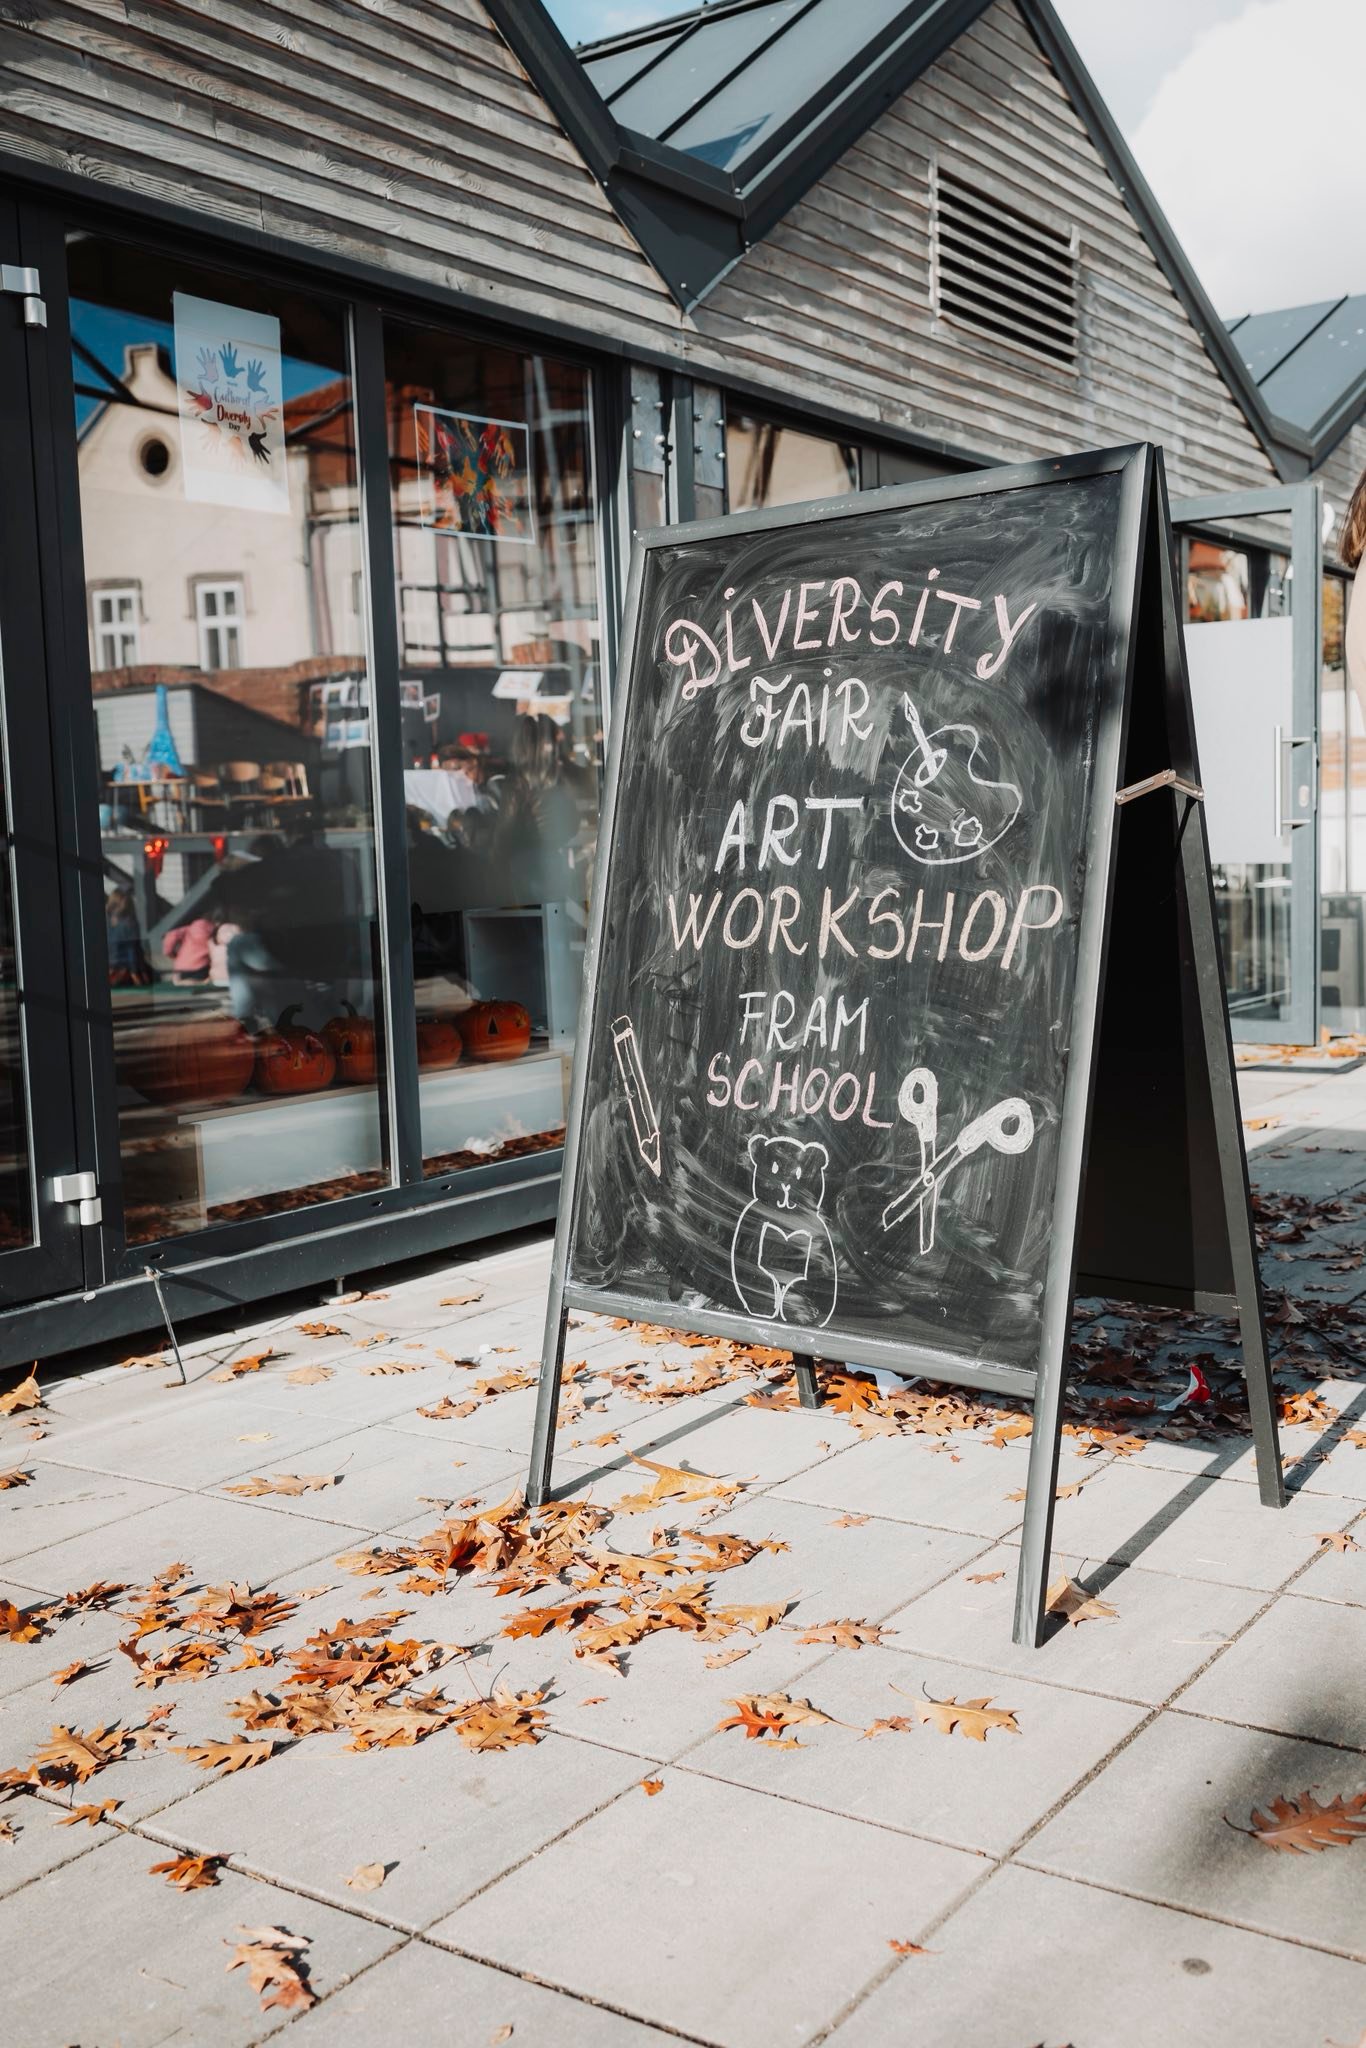 Cultural
Diversity
DAY
DiVERSiTY
FAiR
ART
WORKSHOP
FRAM
SCHOOL